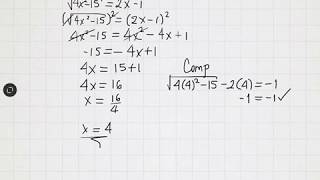 √4x²-15 = 2x-1
(√4x²-15)² = (2x-1)²
4x²-15 = 4x²-4x+1
-15 = -4x+1
4x = 15+1
4x = 16
x = 16/4
x = 4
Comp
√4(4)²-15 -2(4) = -1
-1 = -1 ✓